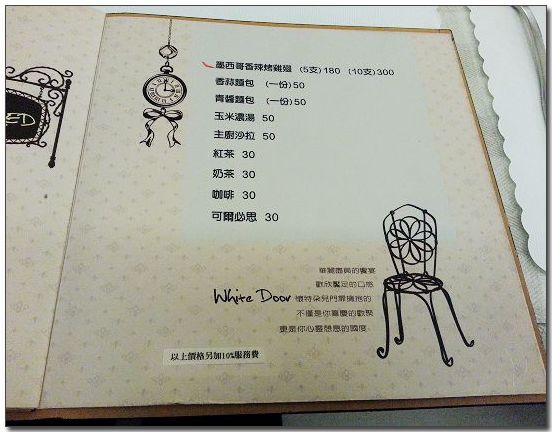 ED
墨西哥香辣烤雞翅 (5支)180 (10支)300
香蒜麵包 (一份)50
青醬麵包 (一份)50
玉米濃湯 50
主廚沙拉 50
紅茶 30
奶茶 30
咖啡 30
可爾必思 30
華麗唇齒的饗宴
歡欣鑒定的口感
White Door 懷特朵兒門扉擁抱的
不僅是你喜慶的歡聚
更是你心靈憩息的國度
以上價格另加10%服務費